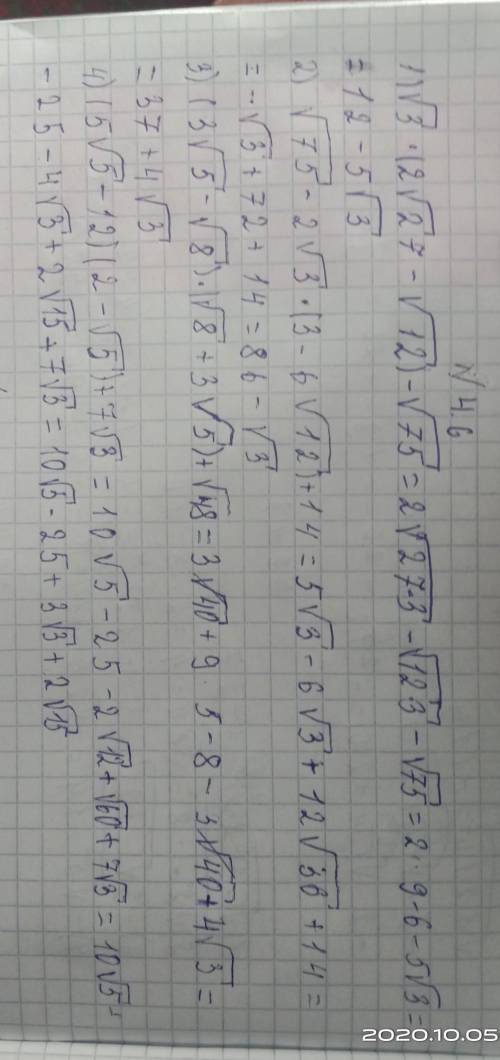 № 4.6
1) √3 · (2√27 - √12) - √75 = 2√27·3 - √12 3 - √75 = 2 · 9 - 6 - 5√3 =
= 12 - 5√3
2) √75 - 2√3 · (3 - 6√12) + 14 = 5√3 - 6√3 + 12√36 + 14 =
= -√3 + 72 + 14 = 86 - √3
3) (3√5 - √8) · (√8 + 3√5) + √48 = 3√40 + 9 · 5 - 8 - 3√40 + 4√3 =
= 37 + 4√3
4) (5√5 - √12) (2 - √5) + 7√3 = 10√5 - 25 - 2√12 + √60 + 7√3 = 10√5 -
- 25 - 4√3 + 2√15 + 7√3 = 10√5 - 25 + 3√3 + 2√15
2020.10.05